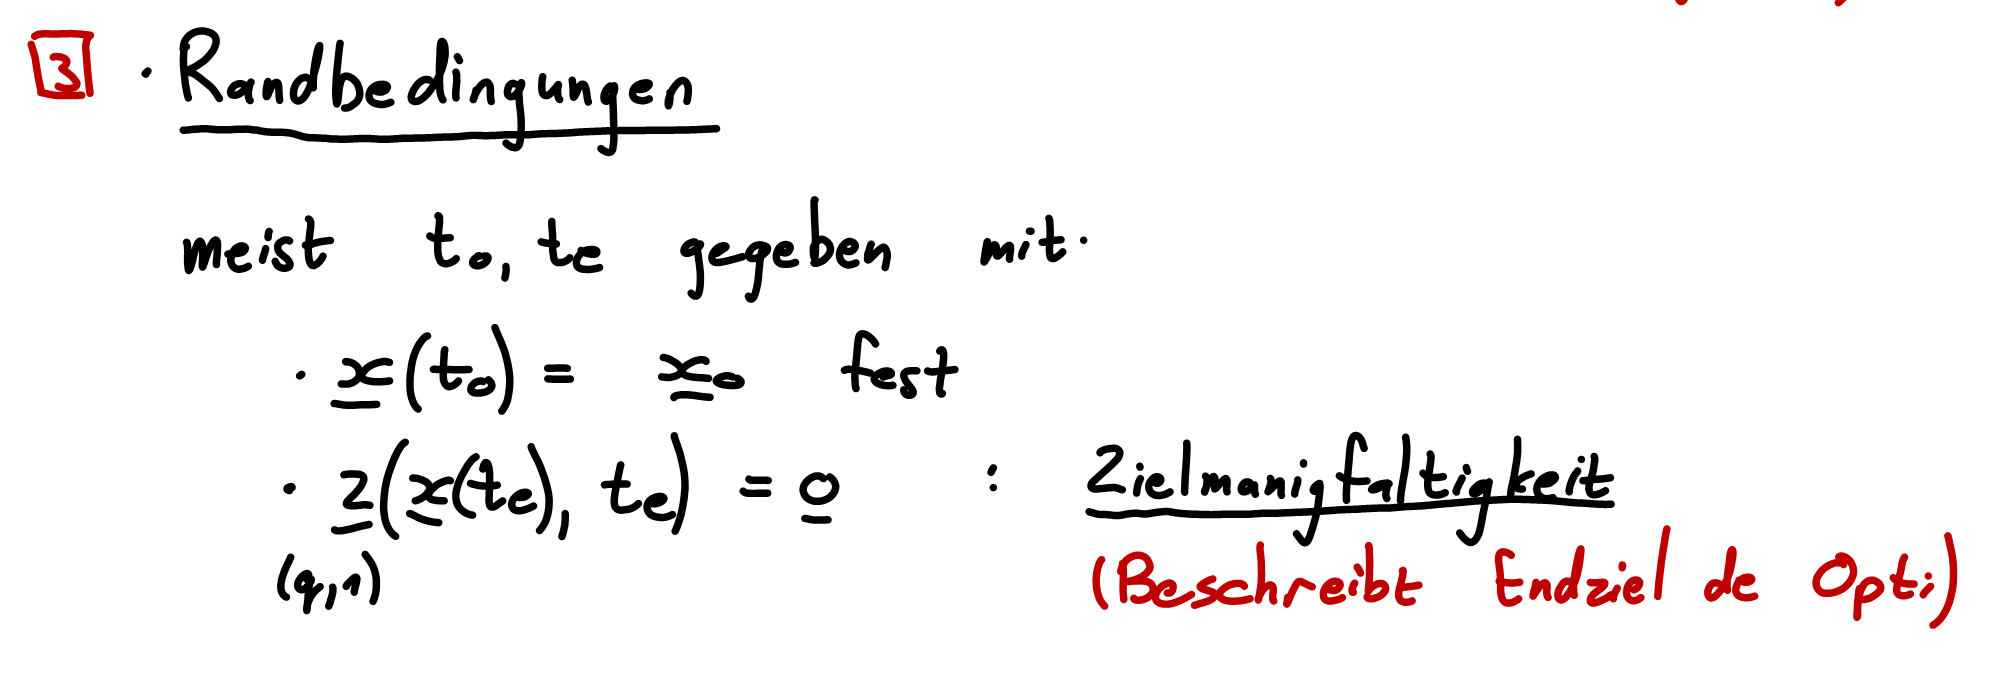 3 · Randbedingungen
meist t₀, te gegeben mit·
· x(t₀) = x₀ fest
· z(x(te), te) = 0 : Zielmanigfaltigkeit
(q,1) (Beschreibt Endziel de Opti)